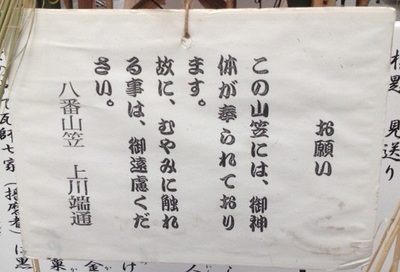 お願い
この山笠には、御神
体が奉られており
ます。
故に、むやみに触れ
る事は、御遠慮くだ
さい。
八番山笠　上川端通
見送り
瓦師七家（播磨者）は黒